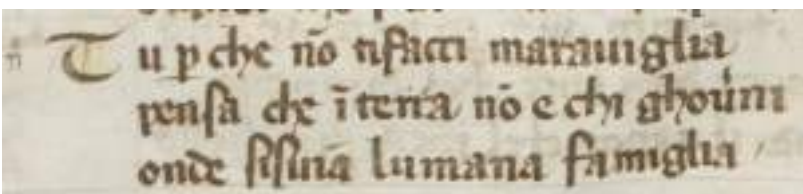 Tu pche nō tifacci marauiglia
pensa che ī terra nō e chi ghouerni
onde sisuia lumana famiglia